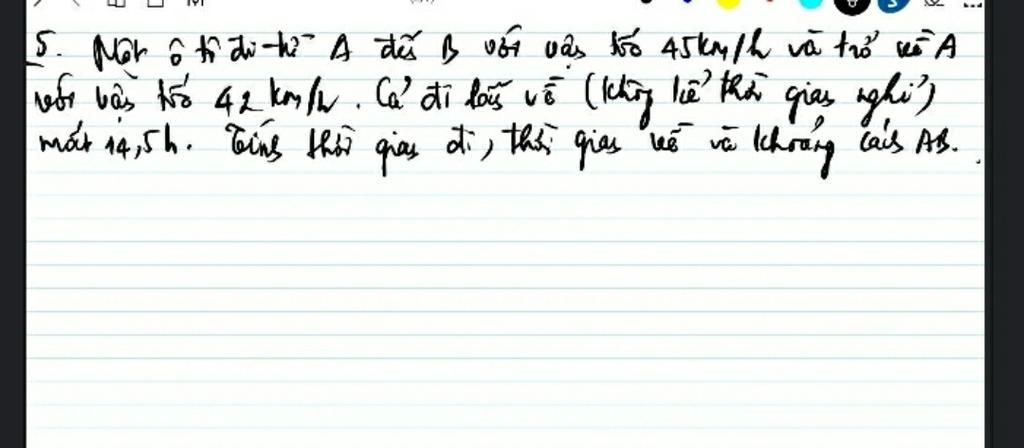 5. Một ô tô đi từ A đến B với vận tốc 45km/h và trở về A
với vận tốc 42 km/h. Cả đi lẫn về (không kể thời gian nghỉ)
mất 14,5h. Tính thời gian đi, thời gian về và khoảng cách AB.